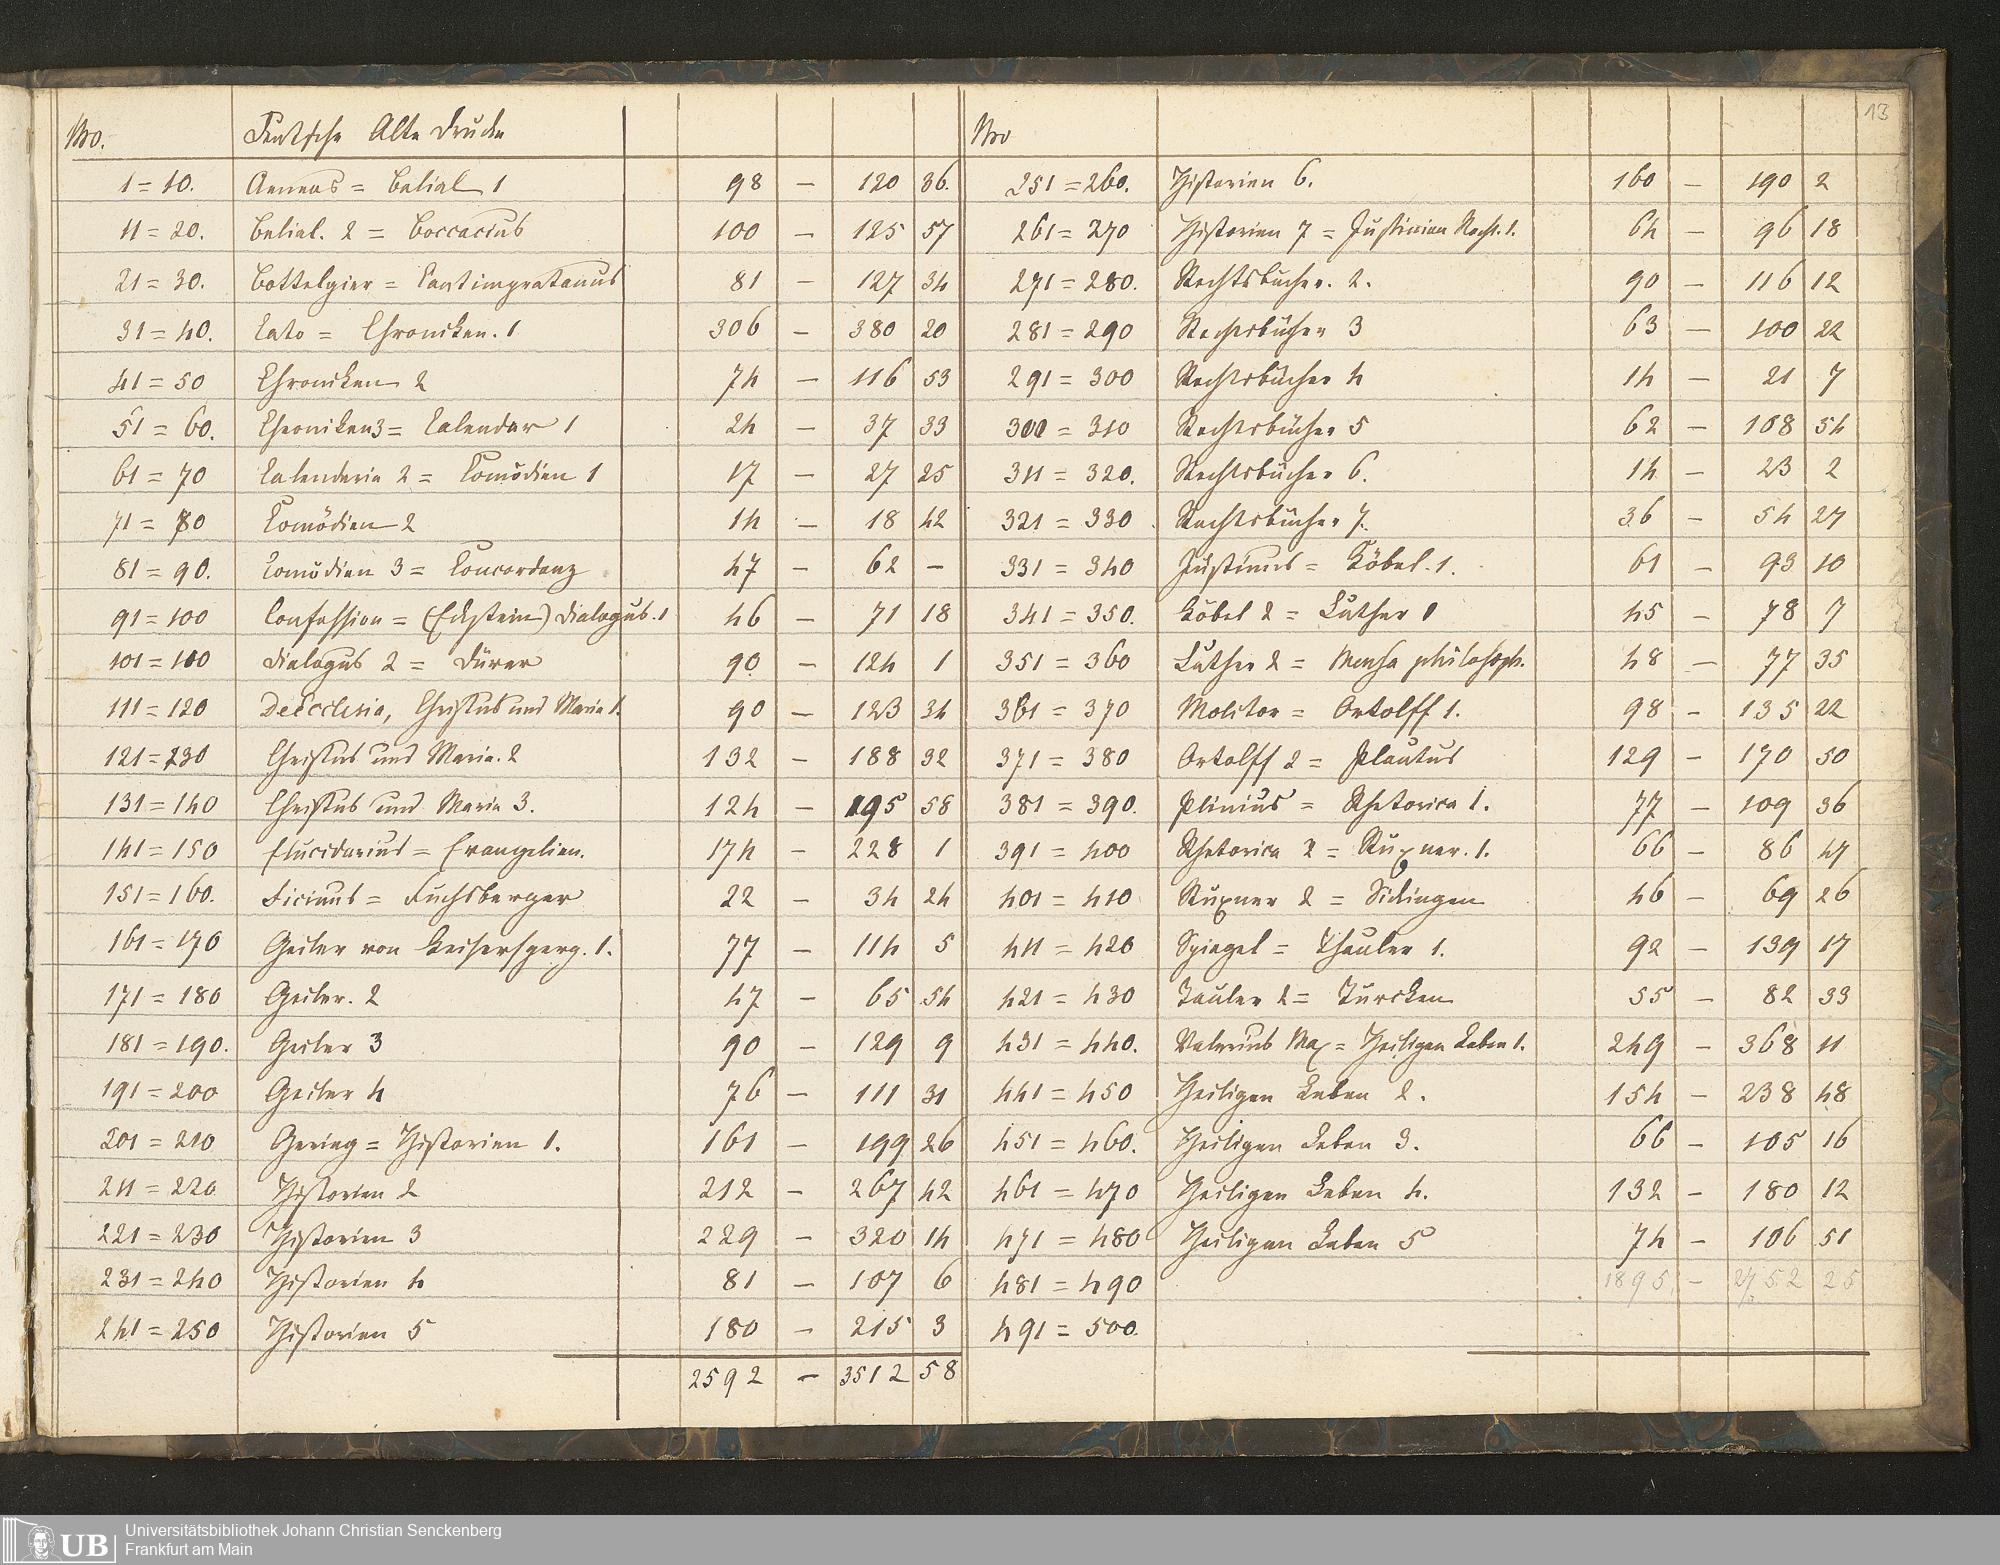 13
Nro. Deutsche Alte Drucke
1 = 10. Aeneas = Belial 1 98 — 120 36.
11 = 20. Belial. 2 = Boccacius 100 — 125 57
21 = 30. Bottelgier = Cantimpratanus 81 — 127 34
31 = 40. Cato = Chroniken. 1 306 — 380 20
41 = 50 Chroniken 2 74 — 116 53
51 = 60. Chroniken 3 = Calendar 1 24 — 37 33
61 = 70 Calendaria 2 = Comödien 1 17 — 27 25
71 = 80 Comödien 2 14 — 18 42
81 = 90. Comödien 3 = Concordanz 47 — 62 —
91 = 100 Confession = (Eckstein) Dialogus. 1 46 — 71 18
101 = 110 Dialogus 2 = Dürer 90 — 124 1
111 = 120 Deecclesia, Christus und Maria 1. 90 — 123 34
121 = 130 Christus und Maria. 2 132 — 188 32
131 = 140 Christus und Maria 3. 124 — 195 58
141 = 150 Elucidarius = Evangelien. 174 — 228 1
151 = 160. Ficinus = Fuchsberger 22 — 34 24
161 = 170 Geiler von Keisersperg. 1. 77 — 114 5
171 = 180 Geiler. 2 47 — 65 54
181 = 190. Geiler 3 90 — 129 9
191 = 200 Geiler 4 76 — 111 31
201 = 210 Gering = Historien 1. 161 — 199 26
211 = 220 Historien 2 212 — 267 42
221 = 230 Historien 3 229 — 320 14
231 = 240 Historien 4 81 — 107 6
241 = 250 Historien 5 180 — 215 3
2592 — 3512 58
Nro
251 = 260. Historien 6. 160 — 190 2
261 = 270 Historien 7 = Justinian Recht. 1. 64 — 96 18
271 = 280. Rechtsbücher. 2. 90 — 116 12
281 = 290 Rechtsbücher 3 63 — 100 22
291 = 300 Rechtsbücher 4 14 — 21 7
300 = 310 Rechtsbücher 5 62 — 108 54
311 = 320. Rechtsbücher 6. 14 — 23 2
321 = 330 Rechtsbücher 7. 36 — 54 27
331 = 340 Justinus = Köbel. 1. 61 — 93 10
341 = 350. Köbel 2 = Luther 1 45 — 78 7
351 = 360 Luther 2 = Mensa philosoph. 48 — 77 35
361 = 370 Molitor = Ortolff 1. 98 — 135 22
371 = 380 Ortolff 2 = Plautus 129 — 170 50
381 = 390. Plinius = Rhetorica 1. 77 — 109 36
391 = 400 Rhetorica 2 = Ruxner. 1. 66 — 86 47
401 = 410 Ruxner 2 = Sickingen 46 — 69 26
411 = 420 Spiegel = Thauler 1. 92 — 139 17
421 = 430 Tauler 2 = Türcken 55 — 82 33
431 = 440. Valerius Max = Heiligen Leben 1. 249 — 368 11
441 = 450 Heiligen Leben 2. 154 — 238 48
451 = 460. Heiligen Leben 3. 66 — 105 16
461 = 470 Heiligen Leben 4. 132 — 180 12
471 = 480 Heiligen Leben 5 74 — 106 51
481 = 490 1895 — 2752 25
491 = 500.
UB Universitätsbibliothek Johann Christian Senckenberg
Frankfurt am Main